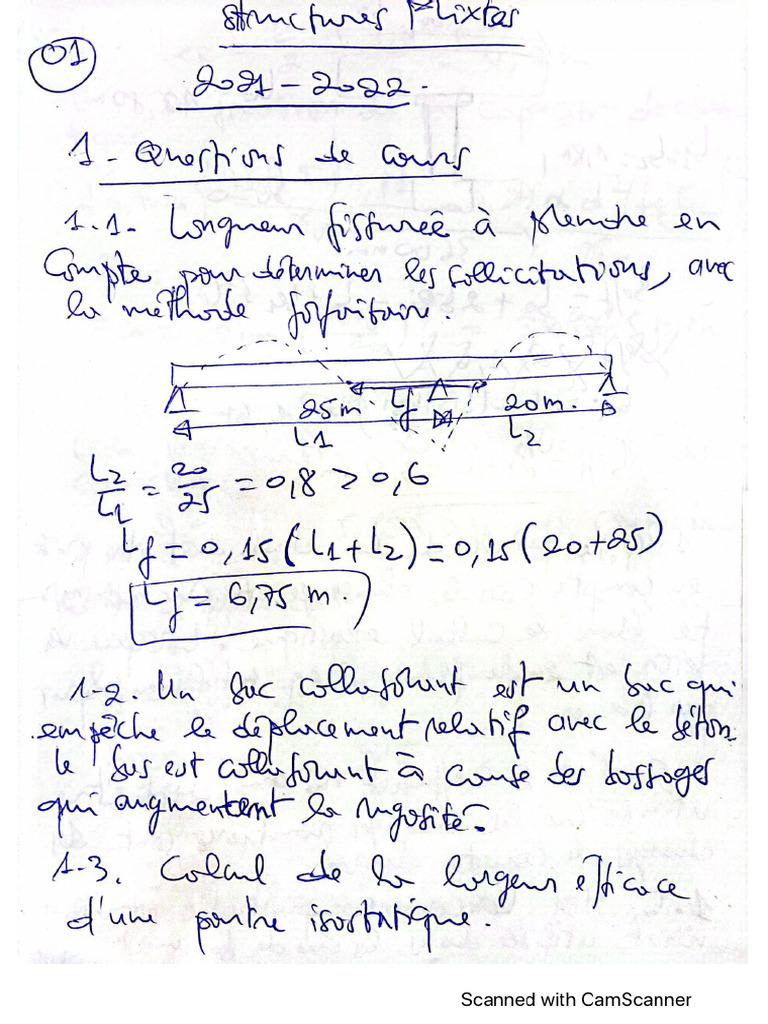 Structures Mixtes
01
2021-2022.
1- Questions de cours
1.1- Longueur fissurée à prendre en
Compte pour déterminer les sollicitations, avec
la méthode forfaitaire.
25m. Lf 20m.
L1 L2
L2/L1 = 20/25 = 0,8 > 0,6
Lf = 0,15(L1+L2) = 0,15(20+25)
Lf = 6,75 m.
1-2. Un bac collaborant est un bac qui
empêche le déplacement relatif avec le béton
le bas est collaborant à cause des bossages
qui augmentent la rugosité.
1-3. Calcul de la largeur efficace
d'une poutre isostatique.
Scanned with CamScanner